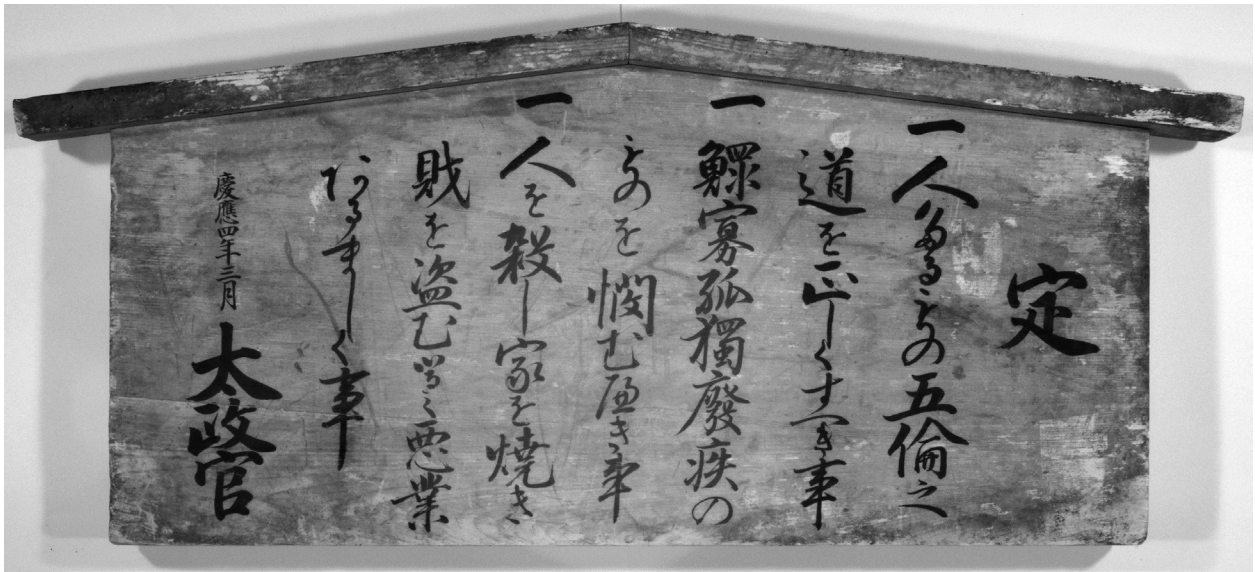 定
一人たるもの五倫之
道を正しくすへき事
一鰥寡孤獨廢疾の
ものを憫むへき事
一人を殺し家を焼き
財を盗む等之悪業
あるましく事
慶應四年三月 太政官